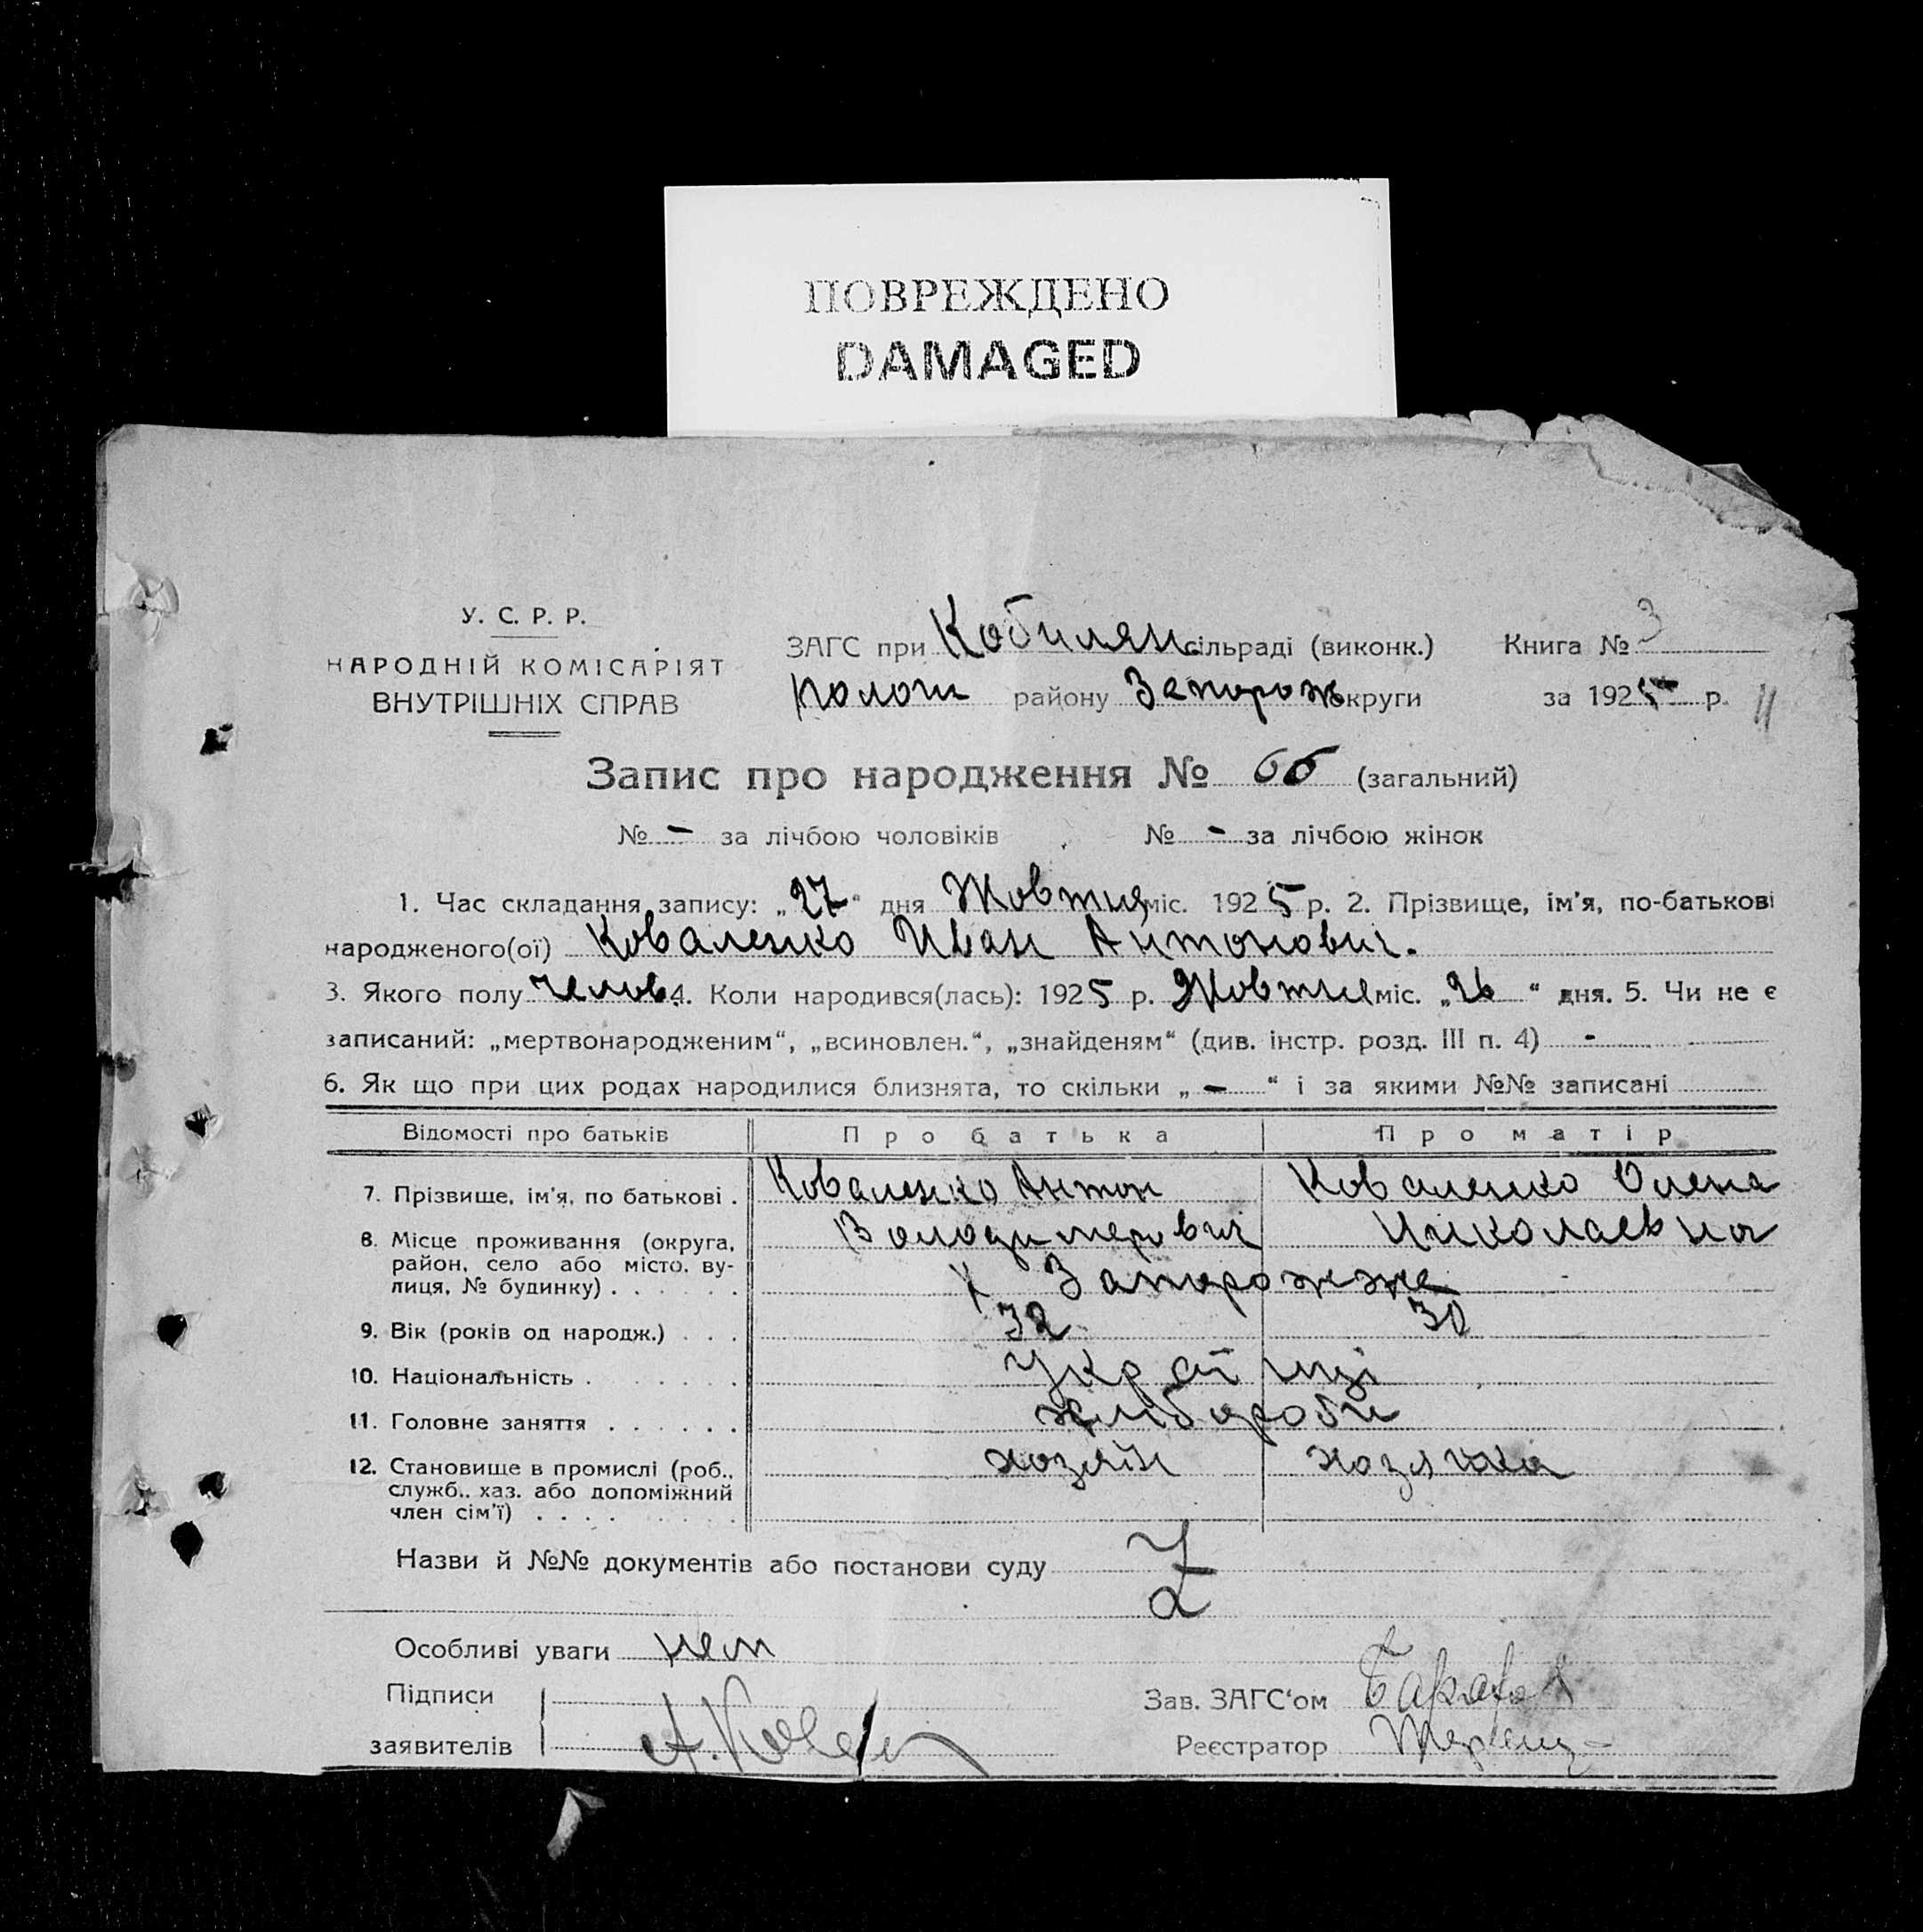 ПОВРЕЖДЕНО
DAMAGED
У. С. Р. Р.
НАРОДНІЙ КОМІСАРІЯТ
ВНУТРІШНІХ СПРАВ
ЗАГС при Кобилян сільраді (виконк.) Книга № 3
Полог району Запорож округи за 1925 р. 11
Запис про народження № 66 (загальний)
№ - за лічбою чоловіків № - за лічбою жінок
1. Час складання запису: „27“ дня Жовтня міс. 1925 р. 2. Прізвище, ім'я, по-батькові
народженого(ої) Коваленко Иван Антонович.
3. Якого полу челов 4. Коли народився(лась): 1925 р. Жовтня міс. „26“ дня. 5. Чи не є
записаний: „мертвонародженим“, „всиновлен.“, „знайденям“ (див. інстр. розд. III п. 4) -
6. Як що при цих родах народилися близнята, то скільки „ - “ і за якими №№ записані
Відомості про батьків Про батька Про матір
7. Прізвище, ім'я, по батькові . Коваленко Антон Коваленко Олена
Володимерович Николаевна
8. Місце проживання (округа,
район, село або місто, ву-
лиця, № будинку) . . . . . . х Запорожже
9. Вік (років од народж.) . . . 32 30
10. Національність . . . . . . . Українці
11. Головне заняття . . . . . . хлибороби
12. Становище в промислі (роб.,
служб., хаз. або допоміжний
член сім'ї) . . . . . . . . . хозяін хозяйка
Назви й №№ документів або постанови суду
Особливі уваги нет
Підписи
заявителів А. Ковален
Зав. ЗАГС'ом
Реєстратор